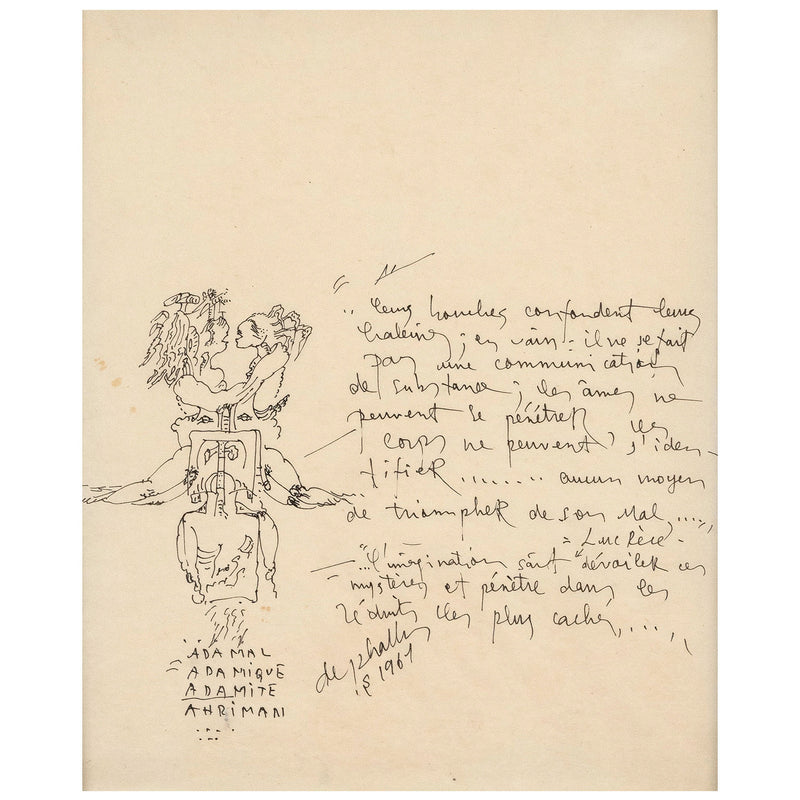 „ leurs bouches confondent leurs
haleines ; en vain : il ne se fait
pas une communication
de substance ; les âmes ne
peuvent se pénétrer les
corps ne peuvent s'iden-
tifier....... aucun moyen
de triompher de son mal,....,
= Lucrèce -
— "...l'imagination sait dévoiler ces
mystères et pénètre dans les
réduits les plus cachés,....,
1961
ADAMAL
ADAMIQUE
ADAMITE
AHRIMAN